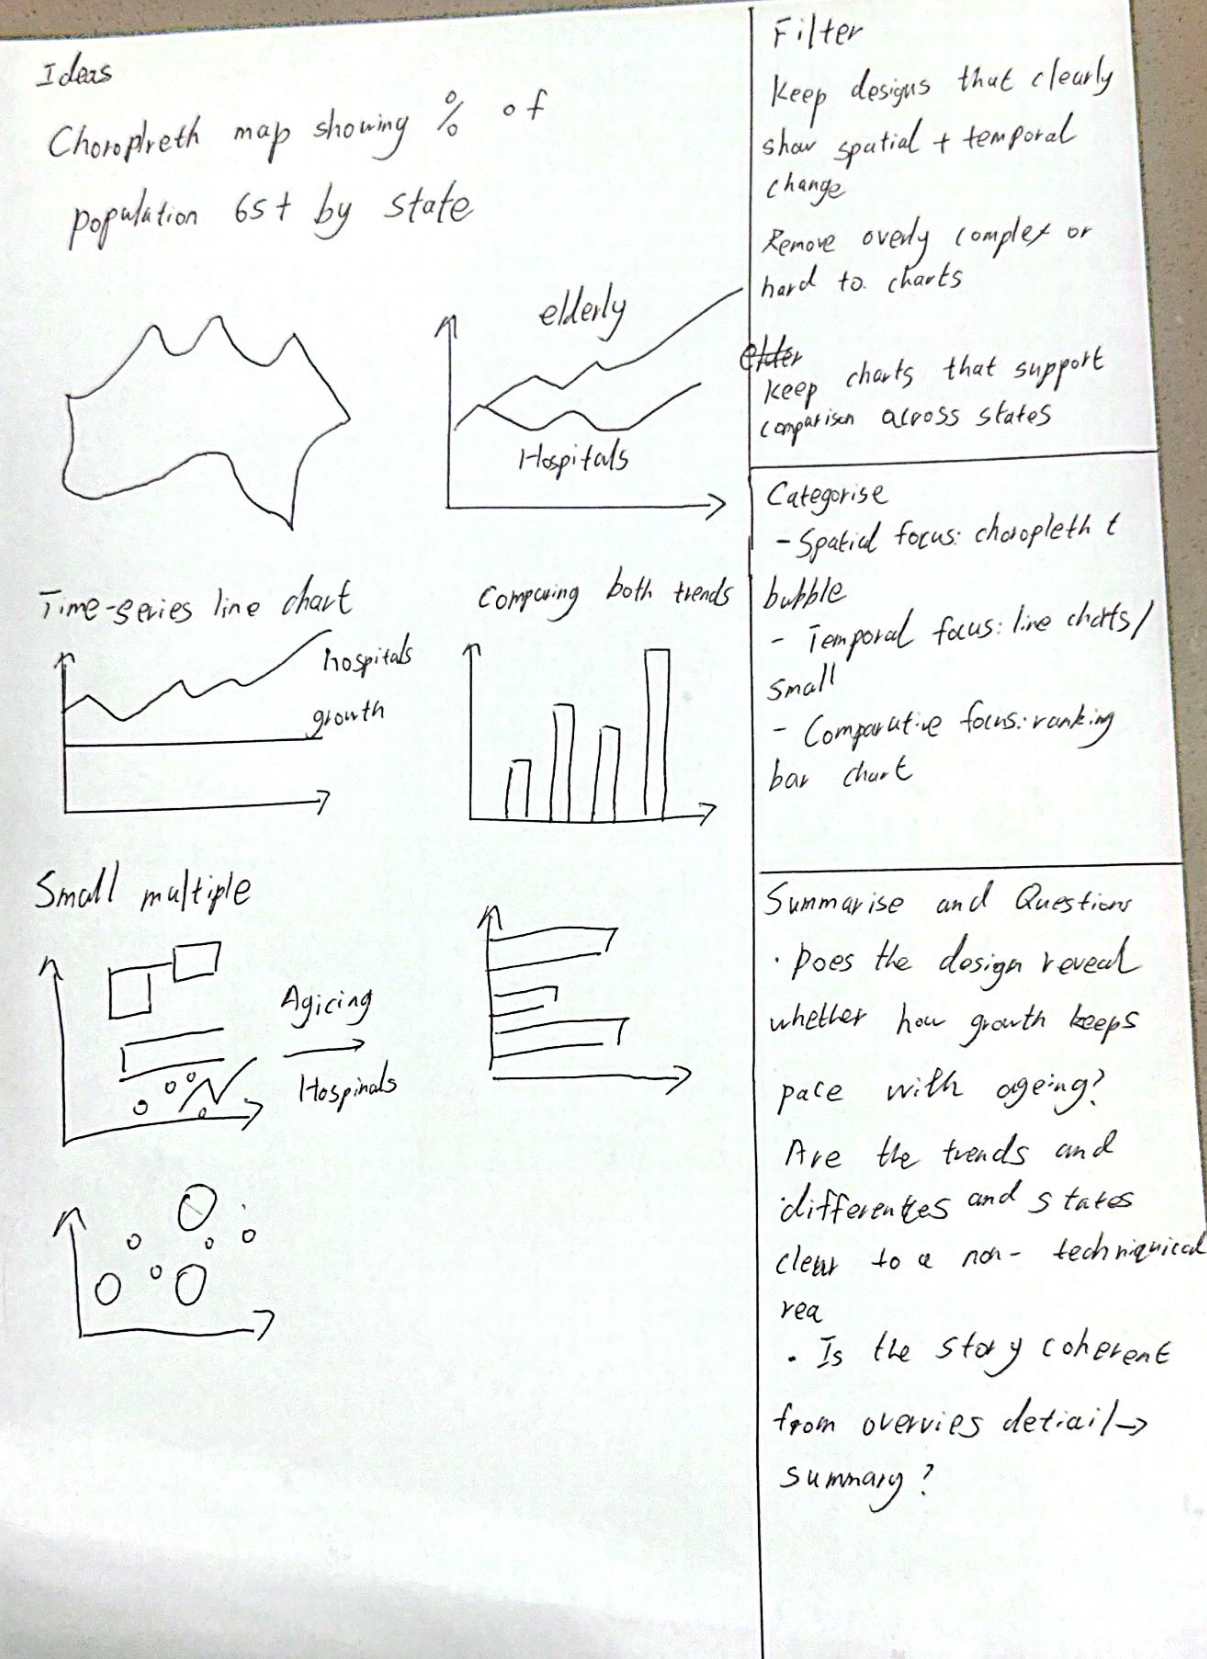 Ideas
Choroplreth map showing % of
population 65+ by state
elderly
Hospitals
Time-series line chart
Comparing both trends
hospitals
growth
Small multiple
Agicing
Hospinals
Filter
Keep designs that clearly
show spatial + temporal
change
Remove overly complex or
hard to charts
elder
keep charts that support
comparison across states
Categorise
- Spatial focus: choropleth t
bubble
- Temporal focus: line chatts/
small
- Comparative focus: ranking
bar chart
Summarise and Questions
· Does the design reveal
whether how growth keeps
pace with ageing?
Are the trends and
differentes and states
clear to a non- techniquical
rea
· Is the story coherent
from overvies detiail →
summary?